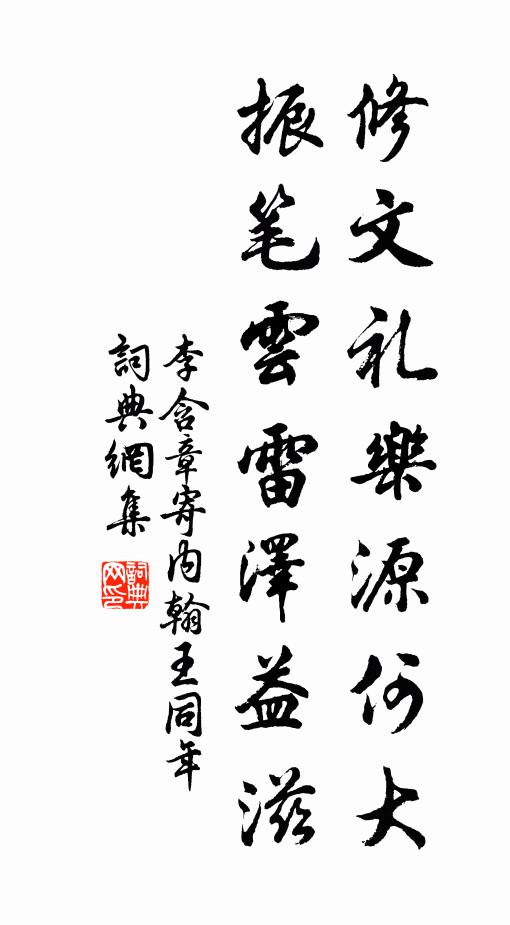 修文礼樂源何大
振笔雲雷澤益滋
李含章寄内翰王同年
詞典網集
詞典网印